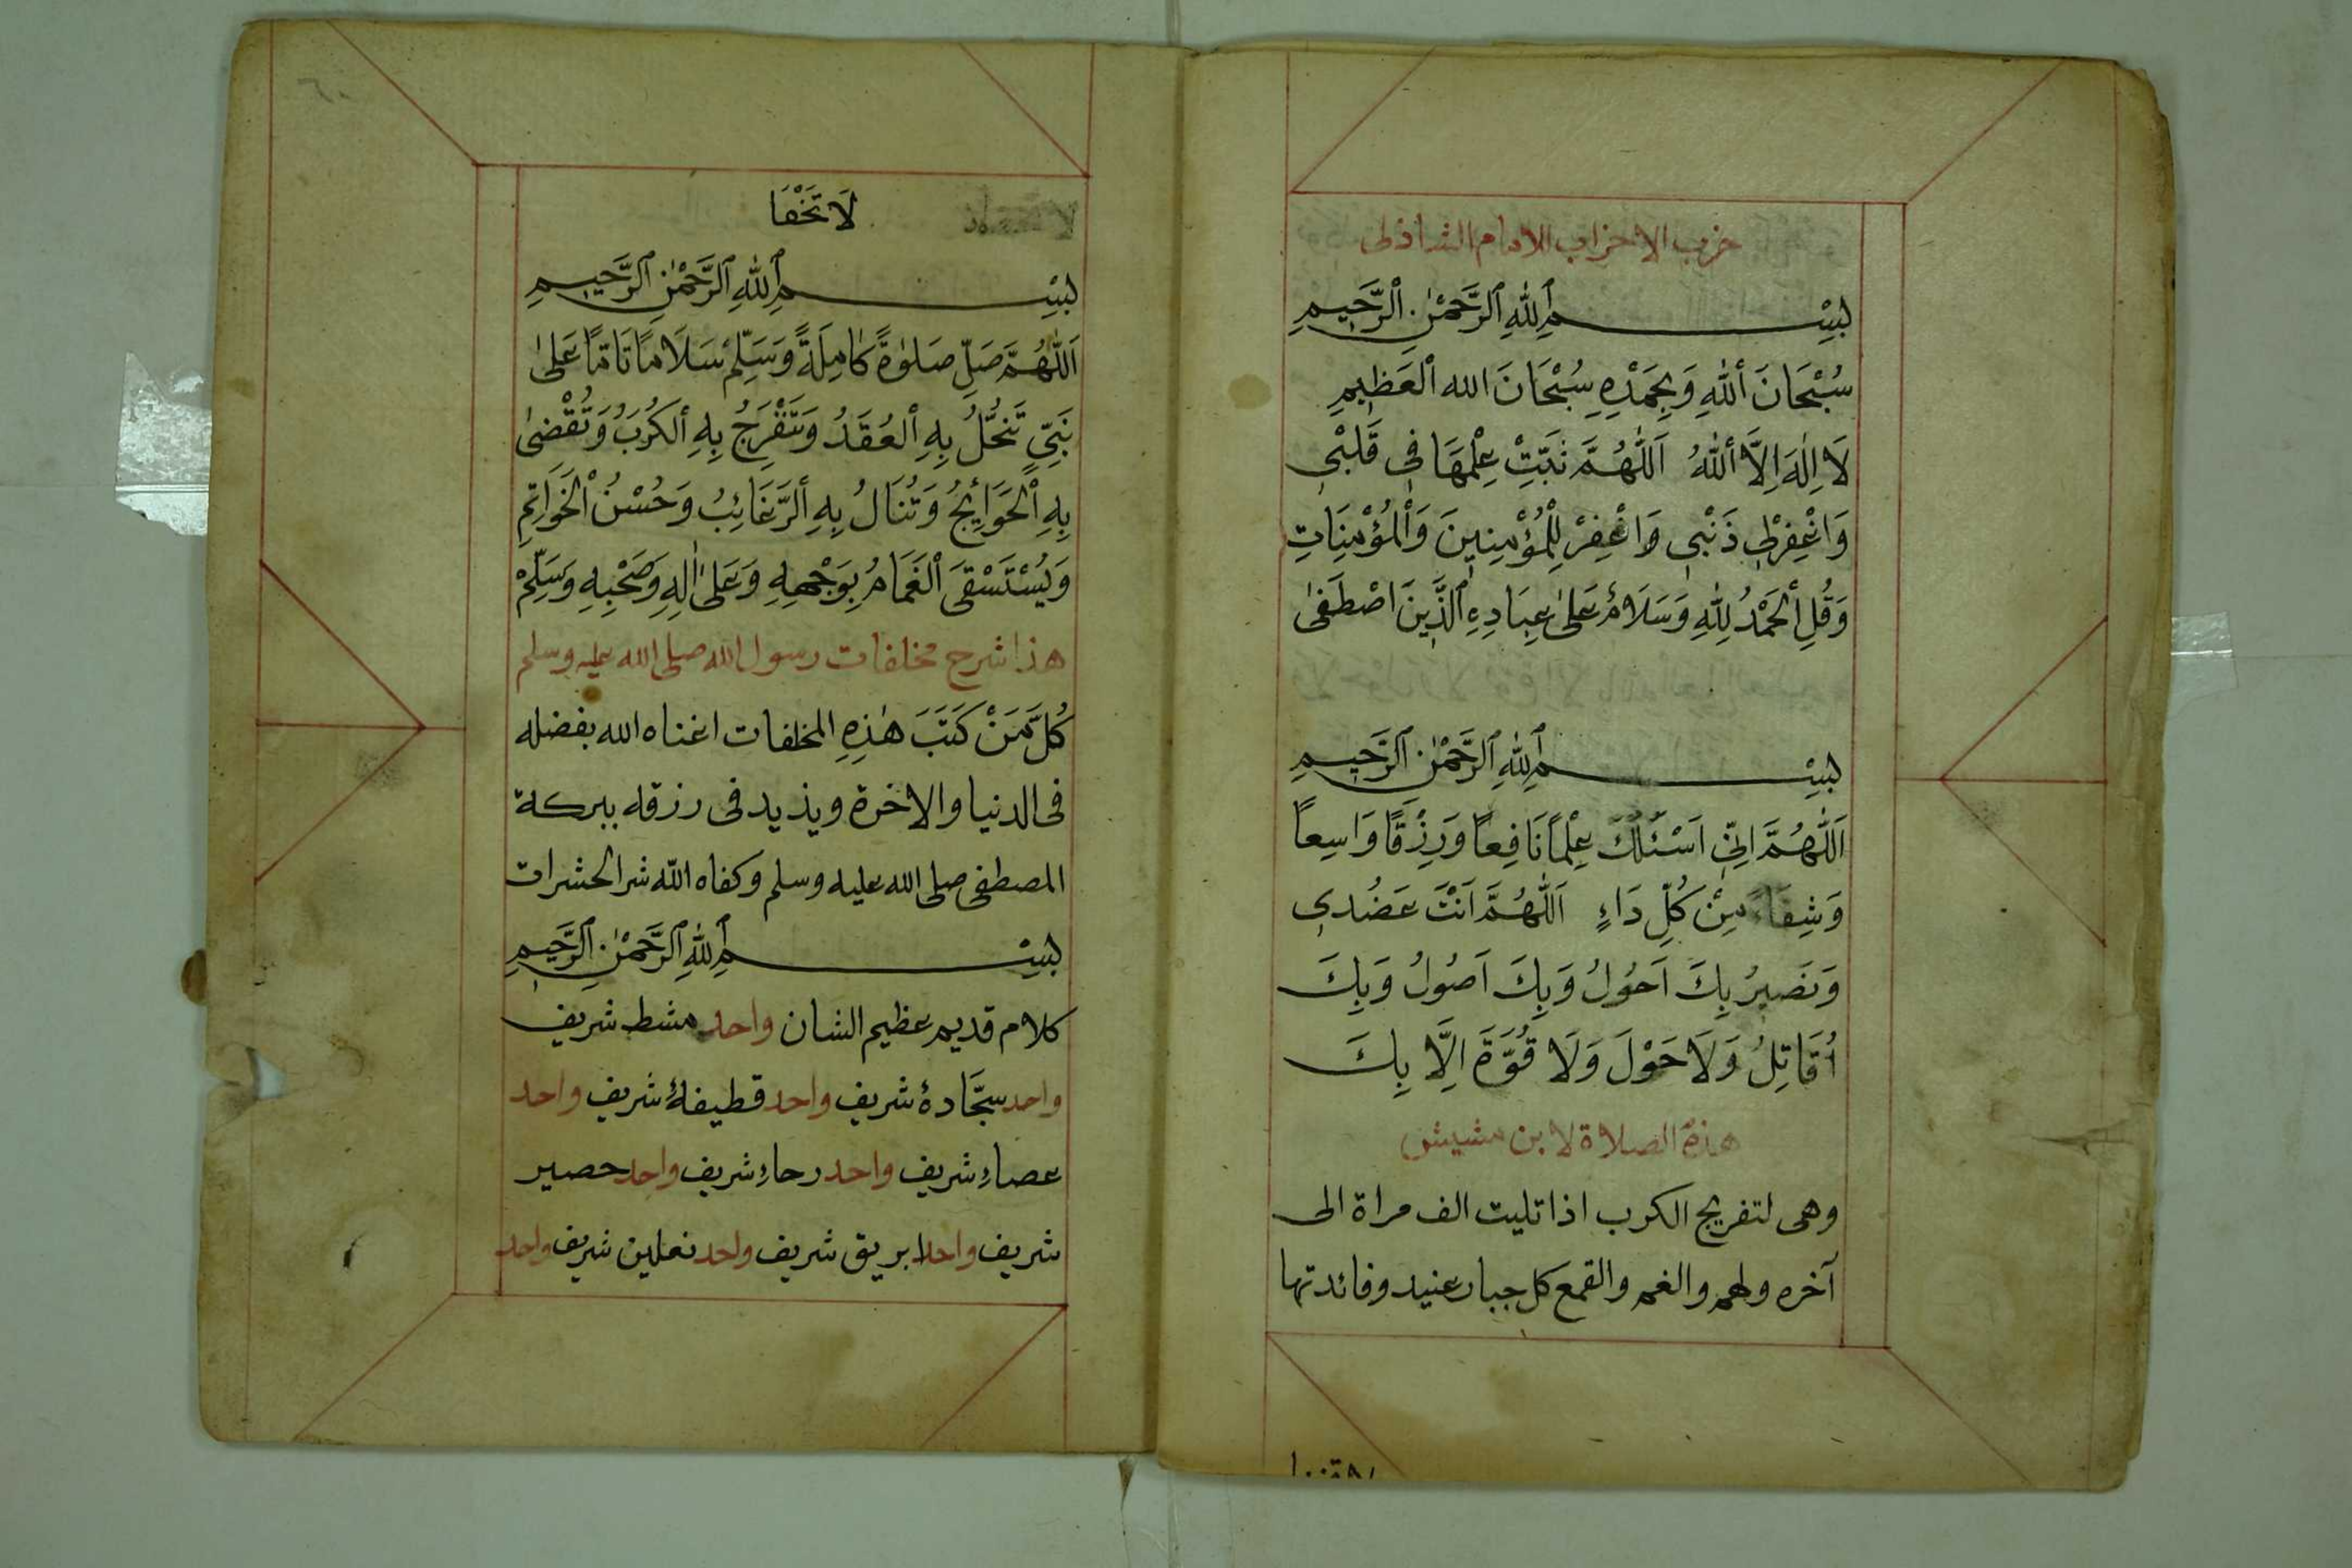 حزب الاحزاب للامام الشاذلى
بِسْمِ اللهِ الرَّحْمٰنِ الرَّحِيمِ
سُبْحَانَ اللهِ وَبِحَمْدِهِ سُبْحَانَ الله الْعَظِيمِ
لَا اِلٰهَ اِلَّا اللهُ اَللّٰهُمَّ ثَبِّتْ عِلْمَهَا فِى قَلْبْى
وَاغْفِرْلِى ذَنْبْى وَاغْفِرْ لِلْمُؤْمِنِينَ وَالْمُؤْمِنَاتِ
وَقُلِ الْحَمْدُ لِلّٰهِ وَسَلَامٌ عَلىٰ عِبَادِهِ الَّذِينَ اصْطَفىٰ
بِسْمِ اللهِ الرَّحْمٰنِ الرَّحِيمِ
اَللّٰهُمَّ اِنِّى اَسْئَلُكَ عِلْمًا نَافِعًا وَرِزْقًا وَاسِعًا
وَشِفَاءً مِنْ كُلِّ دَاءٍ اَللّٰهُمَّ اَنْتَ عَضُدِى
وَنَصِيرُ بِكَ اَحُولُ وَبِكَ اَصُولُ وَبِكَ
اُقَاتِلُ وَلَا حَوْلَ وَلَا قُوَّةَ اِلَّا بِكَ
هذه الصلاة لابن مشيش
وهى لتفريج الكرب اذا تليت الف مراة الى
آخره ولهم والغم والقمع كل جبار عنيد وفائدتها
لَا تَخْفَا
بِسْمِ اللهِ الرَّحْمٰنِ الرَّحِيمِ
اَللّٰهُمَّ صَلِّ صَلوٰةً كَامِلَةً وَسَلِّمْ سَلَامًا تَامًّا عَلىٰ
نَبِىٍّ تَنْحَلُّ بِهِ الْعُقَدُ وَتَنْفَرِجُ بِهِ الْكُرَبُ وَتُقْضىٰ
بِهِ الْحَوَايِجُ وَتُنَالُ بِهِ الرَّغَائِبُ وَحُسْنُ الْخَوَاتِمِ
وَيُسْتَسْقَى الْغَمَامُ بِوَجْهِهِ وَعَلىٰ اٰلِهِ وَصَحْبِهِ وَسَلِّمْ
هذا شرح مخلفات رسول الله صلى الله عليه وسلم
كُلَّ مَنْ كَتَبَ هٰذِهِ المخلفات اغناه الله بفضله
فى الدنيا والاخرة ويذيد فى رزقه ببركة
المصطفى صلى الله عليه وسلم وكفاه الله شر الحشرات
بِسْمِ اللهِ الرَّحْمٰنِ الرَّحِيمِ
كلام قديم عظيم الشان واحد مشط شريف
واحد سجَّادهٔ شريف واحد قطيفهٔ شريف واحد
عصاءِ شريف واحد رحاءِ شريف واحد حصير
شريف واحد ابريق شريف واحد نعلين شريف واحد